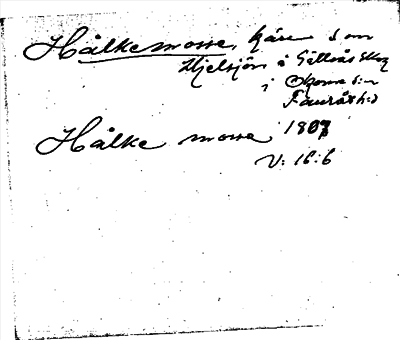 Hålkemosse, kärr s om
Hjelsjön å Gällsås Skog
i Skorna s:n
Fauråsh:d
Hålke mosse 1807
V: 16:6